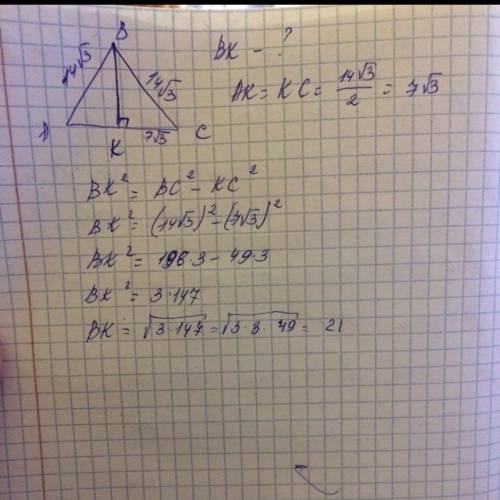 B
14√3
14√3
BK - ?
AK = KC = 14√3/2 = 7√3
A
K
7√3
C
BK² = BC² - KC²
BK² = (14√3)² - (7√3)²
BK² = 196·3 - 49·3
BK² = 3·147
BK = √3·147 = √3·3·49 = 21